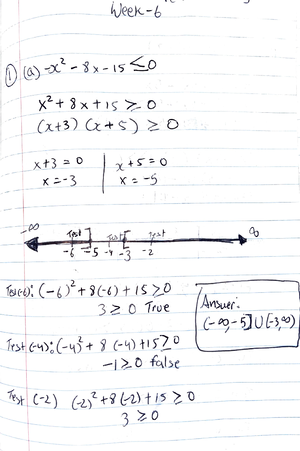 Week-6
① (a) -x² - 8x - 15 ≤ 0
x² + 8x + 15 ≥ 0
(x+3) (x+5) ≥ 0
x+3 = 0 | x+5 = 0
x = -3 | x = -5
-∞ Test Test Test ∞
-6 -5 -4 -3 -2
Test(-6): (-6)² + 8(-6) + 15 ≥ 0
3 ≥ 0 True
Test(-4): (-4)² + 8(-4) + 15 ≥ 0
-1 ≥ 0 false
Test (-2) (-2)² + 8(-2) + 15 ≥ 0
3 ≥ 0
Answer:
(-∞, -5] ∪ [-3, ∞)